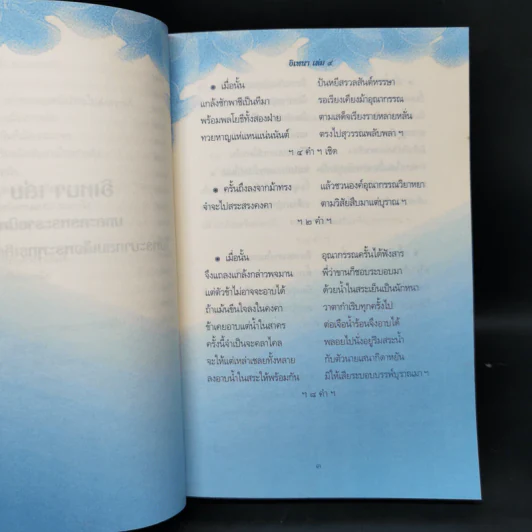 อิเหนา เล่ม ๙
๏ เมื่อนั้น ปันหยีสรวลสันต์หรรษา
แกล้งชักพาชีเป็นทีมา รอเรียงเคียงม้าอุณากรรณ
พร้อมพลโยธีทั้งสองฝ่าย ตามเสด็จเรียงรายหลายหลั่น
ทวยหาญแห่แหนแน่นนันต์ ตรงไปสุวรรณพลับพลา ฯ
ฯ ๔ คำ ฯ เชิด
๏ ครั้นถึงลงจากม้าทรง แล้วชวนองค์อุณากรรณวิยาหยา
จำจะไปสระสรงคงคา ตามวิสัยสืบมาแต่บุราณ ฯ
ฯ ๒ คำ ฯ
๏ เมื่อนั้น อุณากรรณครั้นได้ฟังสาร
จึงแถลงแกล้งกล่าวพจมาน พี่ว่าขานก็ชอบระบอบมา
แต่ตัวข้าไม่อาจจะอาบได้ ด้วยน้ำในสระเย็นเป็นนักหนา
ถ้าแม้นขืนใจลงในคงคา วาตากำเริบทุกครั้งไป
ข้าเคยอาบแต่น้ำในสาคร ต่อเจือน้ำร้อนจึงอาบได้
ครั้งนี้จำเป็นจะคลาไคล พลอยไปนั่งอยู่ริมสระน้ำ
จะให้แต่เหล่าเชลยทั้งหลาย กับตัวนายเสนากิดาหยัน
ลงอาบน้ำในสระให้พร้อมกัน มิให้เสียระบอบบรรพ์บุราณมา ฯ
ฯ ๘ คำ ฯ
๓